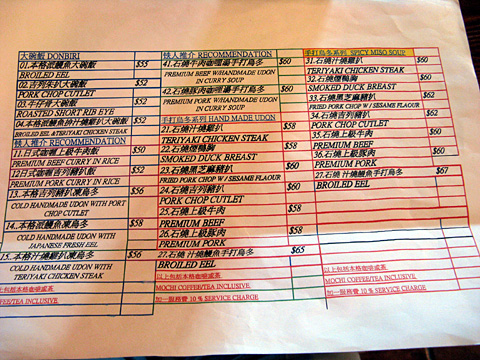 大碗飯 DONBIRI
01.本格派鰻魚大碗飯 $55
BROILED EEL
02.吉列朱扒大碗飯 $52
PORK CHOP CUTLET
03.牛仔骨大碗飯 $52
ROASTED SHORT RIB EYE
$52
BROILED EEL & TERIYAKI CHICKEN STEAK
铁人推介 RECOMMENDATION
11.日式咖喱上級牛肉飯 $50
PREMIUM BEEF CURRY IN RICE
12日式咖喱吉列豬扒飯 $52
PREMIUM PORK CURRY IN RICE
13.吉列豬扒凍烏冬 $56
COLD HANDMADE UDON WITH PORT
CHOP CUTLET
14..本格派鰻魚凍烏冬 $58
COLD HANDMADE UDON WITH
JAPANESE FRESH EEL
15..本格汁燒雞扒凍烏冬 $56
COLD HANDMADE UDON WITH
TERIYAKI CHICKEN STEAK
COFFEE/TEA INCLUSIVE
SERVICE CHARGE
铁人推介 RECOMMENDATION
41.石燒牛肉咖喱湯手打烏冬 $60
PREMIUM BEEF W/HANDMADE UDON
IN CURRY SOUP
42.石燒豚肉咖喱湯手打烏冬 $60
PREMIUM PORK W/HANDMADE UDON
IN CURRY SOUP
手打烏冬系列 HAND MADE UDON
21.石燒汁燒雞扒 $58
TERIYAKI CHICKEN STEAK
22.石燒煙鴨胸 $58
SMOKED DUCK BREAST
23.石燒黑芝麻豬扒 $60
FRIED PORK CHOP W / SESAME FLAOUR
24.石燒吉列豬扒 $60
PORK CHOP CUTLET
25.石燒上級牛肉 $58
PREMIUM BEEF
26.石燒上級豚肉 $58
PREMIUM PORK
27.石燒 汁燒鰻魚手打烏冬 $65
BROILED EEL
以上包括本格咖啡或茶
MOCHI COFFEE/TEA INCLUSIVE
加一服務費 10 % SERVICE CHARGE
手打烏冬系列 SPICY MISO SOUP
31.石燒汁燒雞扒 $60
TERIYAKI CHICKEN STEAK
32.石燒煙鴨胸 $60
SMOKED DUCK BREAST
33.石燒黑芝麻豬扒 $62
FRIED PORK CHOP W / SESAME FLAOUR
34.石燒吉列豬扒 $62
PORK CHOP CUTLET
35.石燒上級牛肉 $60
PREMIUM BEEF
36.石燒上級豚肉 $60
PREMIUM PORK
27.石燒 汁燒鰻魚手打烏冬 $67
BROILED EEL
以上包括本格咖啡或茶
MOCHI COFFEE/TEA INCLUSIVE
加一服務費 10 % SERVICE CHARGE